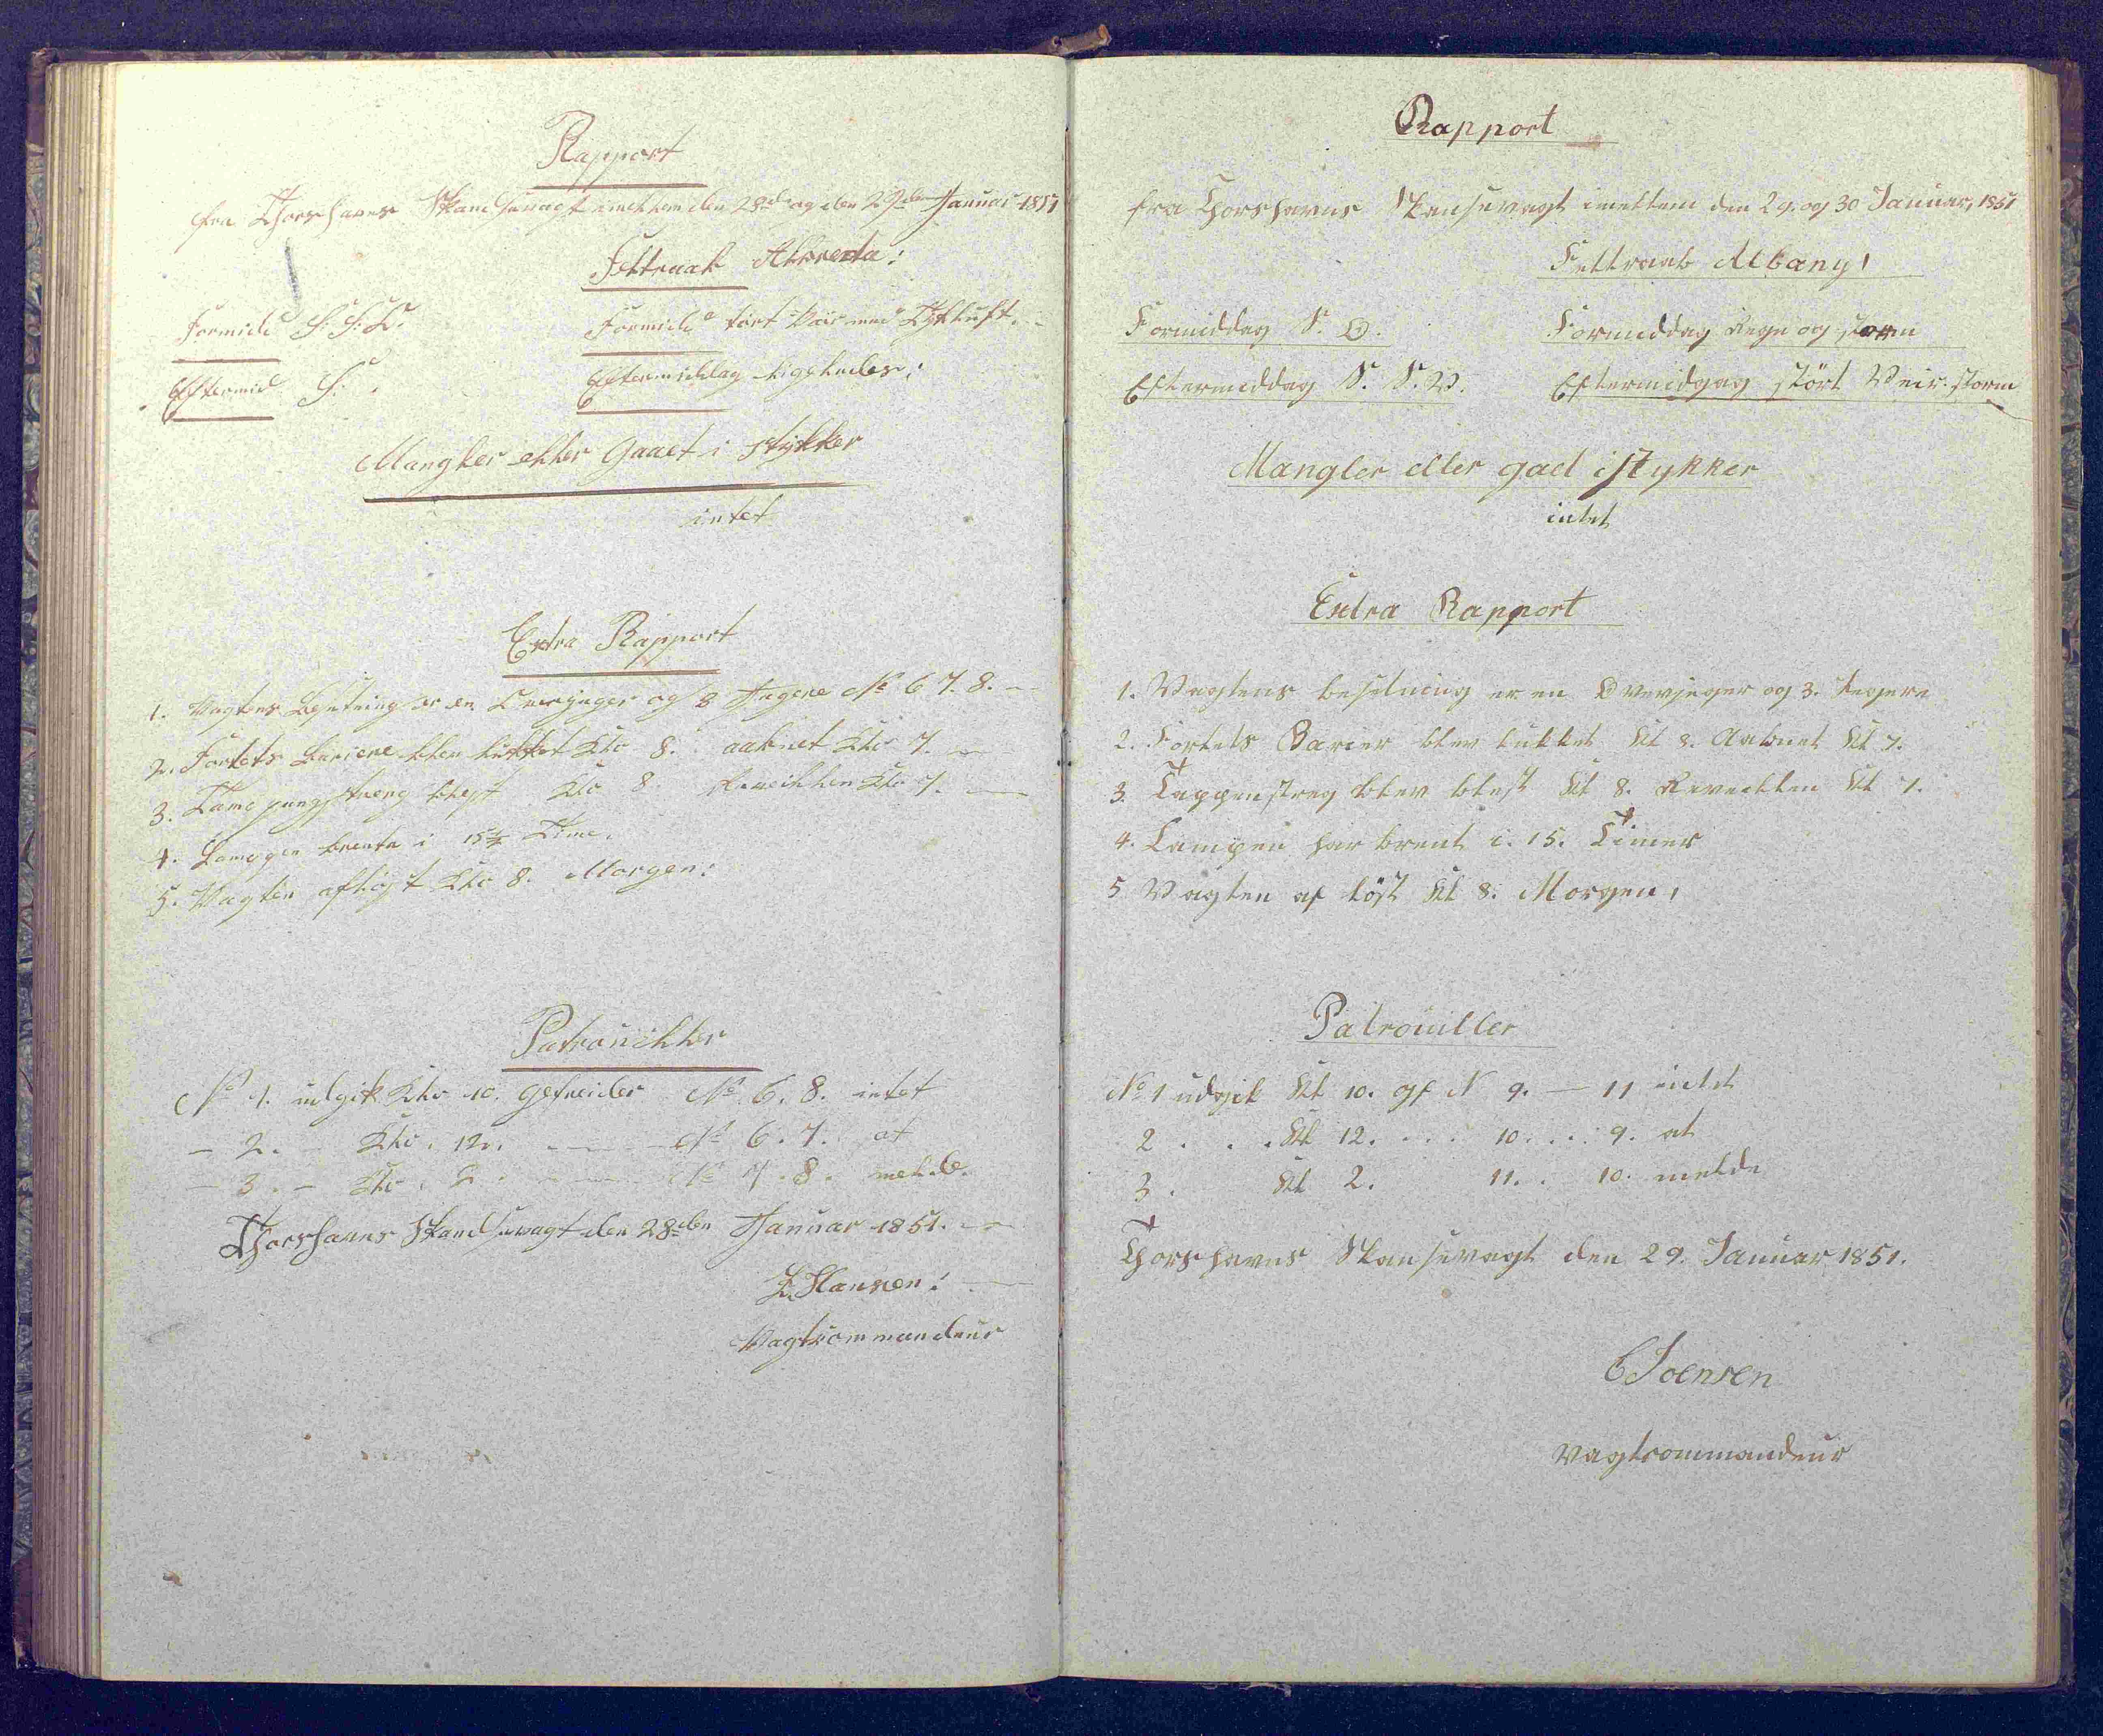 Rapport
fra Thorshavns Skandsevagt imellem den 28de og den 29den Januar 1851
Feltraab
Formidd S: S: O.
Formidd tört Veir med Tykluft.
Eftermid S.
Eftermiddag ligeledes:
Mangler eller Gaaet i Stykker
intet
Extra Rapport
1. Vagtens Besetning er en Overjæger og 3 Jægere No 6 7. 8.
2. Fortets Bariere blev lukket Klo 8. aabnet Klo 7.
3. blest Klo 8 Reveillen Klo 7.
4. Lampen brente i 15½ Time.
5. Vagten aflöst Klo 8. Morgen:
Patrouiller
No 1. udgik Klo 10. gefreider No 6. 8. intet
- 2. - Klo. 12. No 6. 7. at
- 3. - Klo. 2. No 7. 8. melde.
Thorshavns Skandsevagt den 28den Januar 1851.
Hansen:
Vagtcommandeur
Rapport
fra Thorshavns Skansevagt imellem den 29. og 30 Januar, 1851
Feltraab Albany!
Formiddag S. O.
Formiddag Regn og storm
Eftermiddag S. S. V.
Eftermidgag tört Veir. storm
Mangler eller gaed istykker
intet
Extra Rapport
1. Vagtens besetning er en Overjeger og 3. Jegere
2. Fortets Barier blev lukket Kl 8. Aabnet Kl 7.
3. Tappenstreg blev blest Kl 8. Reveillen Kl 7.
4. Lampen har brent i. 15. Timer
5 Vagten af löst Kl 8. Morgen,
Patrouiller
No 1 udgik Kl 10. gf N 9. — 11 intet
2 . . . Kl 12. . . . 10. . . . 9. at
3. Kl 2. 11. . 10. melde
Thorshavns Skansevagt den 29. Januar 1851.
CJoensen
Vagtcommandeur